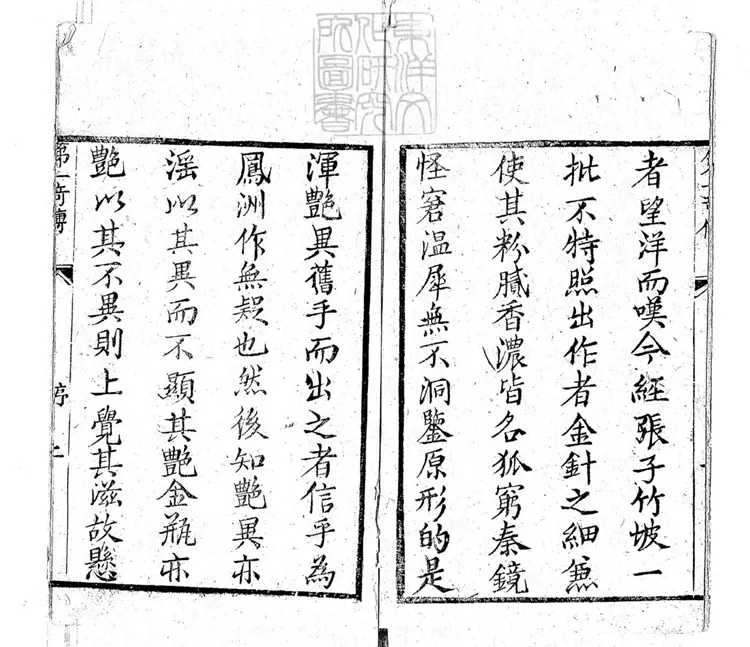 東洋文
化研究
所圖書
者望洋而嘆今經張子竹坡一
批不特照出作者金針之細兼
使其粉膩香濃皆名狐窮秦鏡
怪窘溫犀無不洞鑒原形的是
渾艷異舊手而出之者信乎為
鳳洲作無疑也然後知艷異亦
滛以其異而不顯其艷金瓶亦
艷以其不異則上覺其滛故懸
第一奇 序